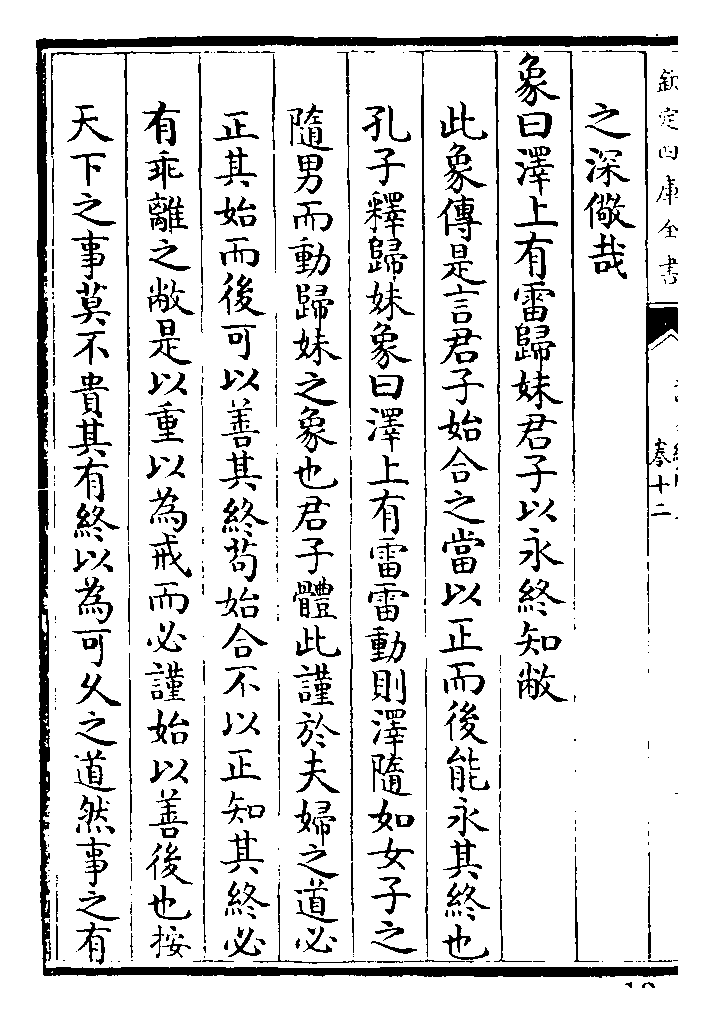 欽定四庫全書
卷十二
之深儆哉
象曰澤上有雷歸妹君子以永終知敝
此象傳是言君子始合之當以正而後能永其終也
孔子釋歸妹象曰澤上有雷雷動則澤隨如女子之
隨男而動歸妹之象也君子體此謹於夫婦之道必
正其始而後可以善其終苟始合不以正知其終必
有乖離之敝是以重以為戒而必謹始以善後也按
天下之事莫不貴其有終以為可久之道然事之有